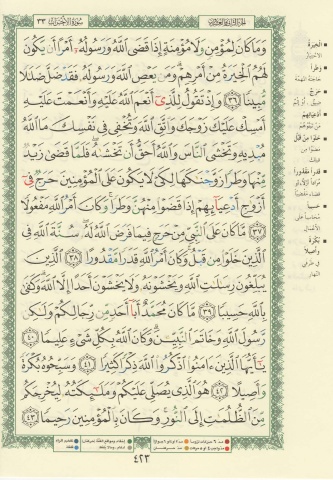 سورة الأحزاب ٣٣
وَمَا كَانَ لِمُؤْمِنٍ وَلَا مُؤْمِنَةٍ إِذَا قَضَى ٱللَّهُ وَرَسُولُهُۥٓ أَمْرًا أَن يَكُونَ
لَهُمُ ٱلْخِيَرَةُ مِنْ أَمْرِهِمْ وَمَن يَعْصِ ٱللَّهَ وَرَسُولَهُۥ فَقَدْ ضَلَّ ضَلَٰلًا
مُّبِينًا ٣٦ وَإِذْ تَقُولُ لِلَّذِىٓ أَنْعَمَ ٱللَّهُ عَلَيْهِ وَأَنْعَمْتَ عَلَيْهِ
أَمْسِكْ عَلَيْكَ زَوْجَكَ وَٱتَّقِ ٱللَّهَ وَتُخْفِى فِى نَفْسِكَ مَا ٱللَّهُ
مُبْدِيهِ وَتَخْشَى ٱلنَّاسَ وَٱللَّهُ أَحَقُّ أَن تَخْشَىٰهُ فَلَمَّا قَضَىٰ زَيْدٌ
مِّنْهَا وَطَرًا زَوَّجْنَٰكَهَا لِكَىْ لَا يَكُونَ عَلَى ٱلْمُؤْمِنِينَ حَرَجٌ فِىٓ
أَزْوَٰجِ أَدْعِيَآئِهِمْ إِذَا قَضَوْا۟ مِنْهُنَّ وَطَرًا وَكَانَ أَمْرُ ٱللَّهِ مَفْعُولًا
٣٧ مَّا كَانَ عَلَى ٱلنَّبِىِّ مِنْ حَرَجٍ فِيمَا فَرَضَ ٱللَّهُ لَهُۥ سُنَّةَ ٱللَّهِ فِى
ٱلَّذِينَ خَلَوْا۟ مِن قَبْلُ وَكَانَ أَمْرُ ٱللَّهِ قَدَرًا مَّقْدُورًا ٣٨ ٱلَّذِينَ
يُبَلِّغُونَ رِسَٰلَٰتِ ٱللَّهِ وَيَخْشَوْنَهُۥ وَلَا يَخْشَوْنَ أَحَدًا إِلَّا ٱللَّهَ وَكَفَىٰ
بِٱللَّهِ حَسِيبًا ٣٩ مَّا كَانَ مُحَمَّدٌ أَبَآ أَحَدٍ مِّن رِّجَالِكُمْ وَلَٰكِن
رَّسُولَ ٱللَّهِ وَخَاتَمَ ٱلنَّبِيِّۦنَ وَكَانَ ٱللَّهُ بِكُلِّ شَىْءٍ عَلِيمًا ٤٠
يَٰٓأَيُّهَا ٱلَّذِينَ ءَامَنُوا۟ ٱذْكُرُوا۟ ٱللَّهَ ذِكْرًا كَثِيرًا ٤١ وَسَبِّحُوهُ بُكْرَةً
وَأَصِيلًا ٤٢ هُوَ ٱلَّذِى يُصَلِّى عَلَيْكُمْ وَمَلَٰٓئِكَتُهُۥ لِيُخْرِجَكُم
مِّنَ ٱلظُّلُمَٰتِ إِلَى ٱلنُّورِ وَكَانَ بِٱلْمُؤْمِنِينَ رَحِيمًا ٤٣
٤٢٣
الخيرة
وطرا
حرج
أدعيائهم
خلوا من قبل
قدرا مقدورا
حسيبا
بكرة
وأصيلا